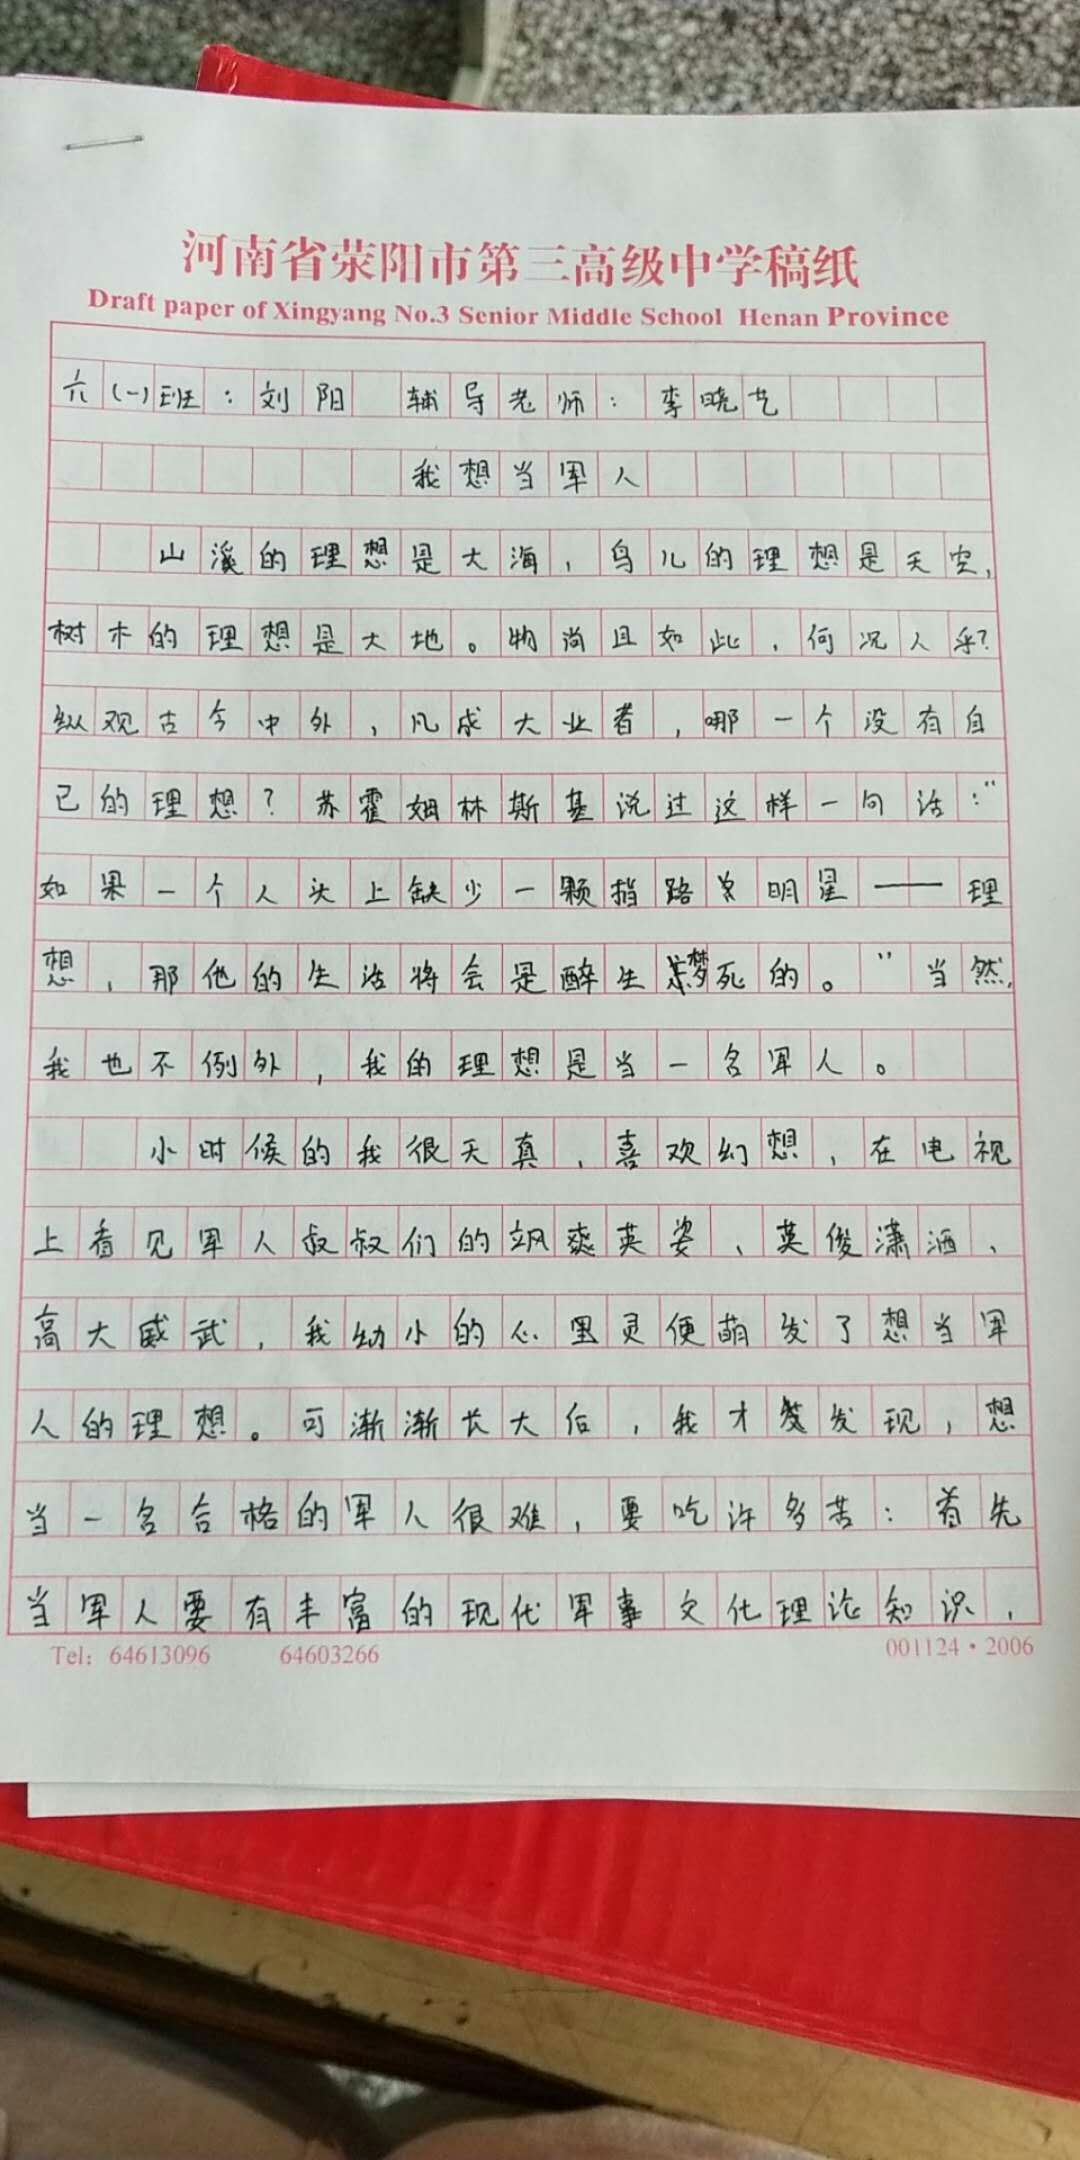 河南省荥阳市第三高级中学稿纸
Draft paper of Xingyang No.3 Senior Middle School Henan Province
六(一)班：刘阳 辅导老师：李晓艺
我想当军人
山溪的理想是大海，鸟儿的理想是天空，
树木的理想是大地。物尚且如此，何况人乎？
纵观古今中外，凡成大业者，哪一个没有自
己的理想？苏霍姆林斯基说过这样一句话：“
如果一个人头上缺少一颗指路明星——理
想，那他的生活将会是醉生梦死的。”当然，
我也不例外，我的理想是当一名军人。
小时候的我很天真，喜欢幻想，在电视
上看见军人叔叔们的飒爽英姿、英俊潇洒、
高大威武，我幼小的心里灵便萌发了想当军
人的理想。可渐渐长大后，我才发现，想
当一名合格的军人很难，要吃许多苦：首先
当军人要有丰富的现代军事文化理论知识，
Tel: 64613096 64603266 001124·2006